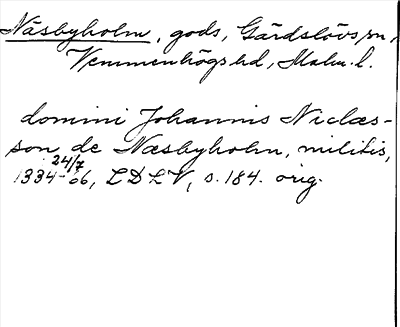 Näsbyholm, gods, Gärdslövs sn,
Vemmenhögs hd, Malm. l.
domini Johannis Niclæs-
son de Næsbyholm, militis,
1334 24/7 -06, LDLV, s. 184. orig.